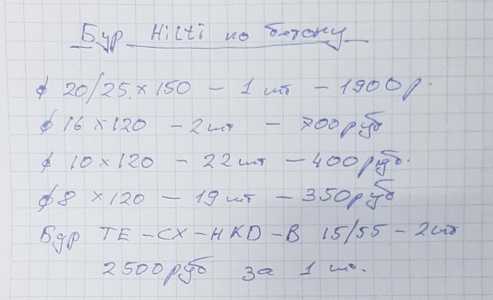 Бур Hilti по бетону
ϕ 20/25 × 150 – 1 шт – 1900 р.
ϕ 16 × 120 – 2 шт – 700 руб
ϕ 10 × 120 – 22 шт – 400 руб.
ϕ 8 × 120 – 19 шт – 350 руб
Бур TE – CX – HKD – B 15/55 – 2 шт
2500 руб за 1 шт.